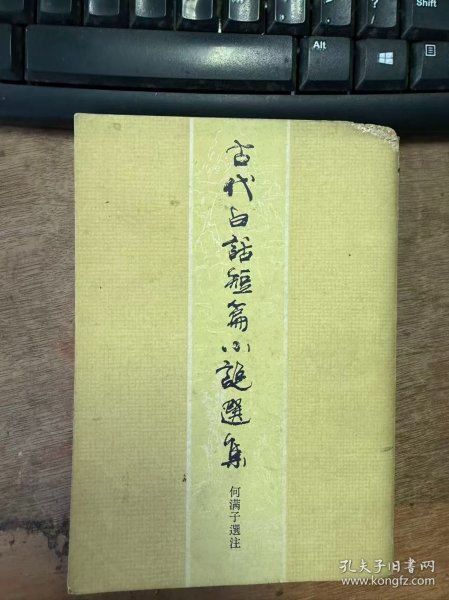 Shift
Alt
Alt
古代白話短篇小說選集
何满子選注
孔夫子旧书网
www.kongfz.com